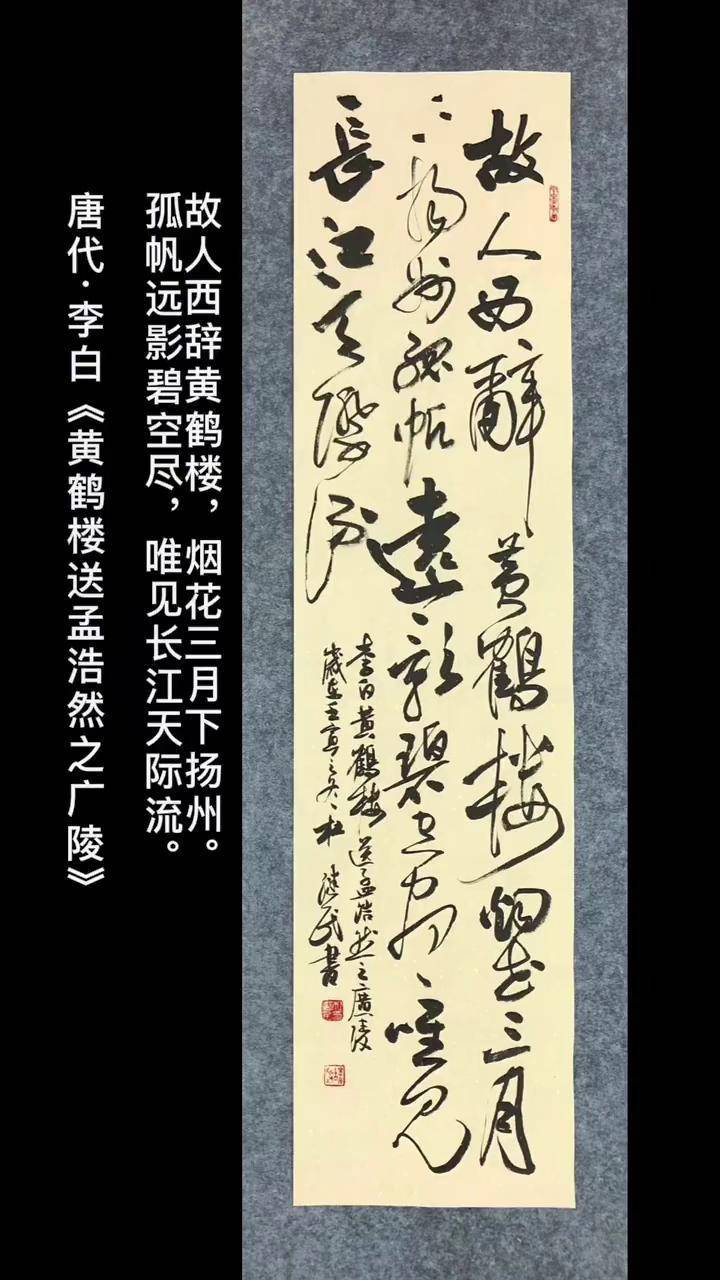 故人西辭黄鶴樓烟花三月
下揚州孤帆遠影碧空盡唯見
長江天際流
李白黄鶴樓送孟浩然之廣陵
歲在壬寅之冬杜民書
故人西辞黄鹤楼，烟花三月下扬州。
孤帆远影碧空尽，唯见长江天际流。
唐代·李白《黄鹤楼送孟浩然之广陵》